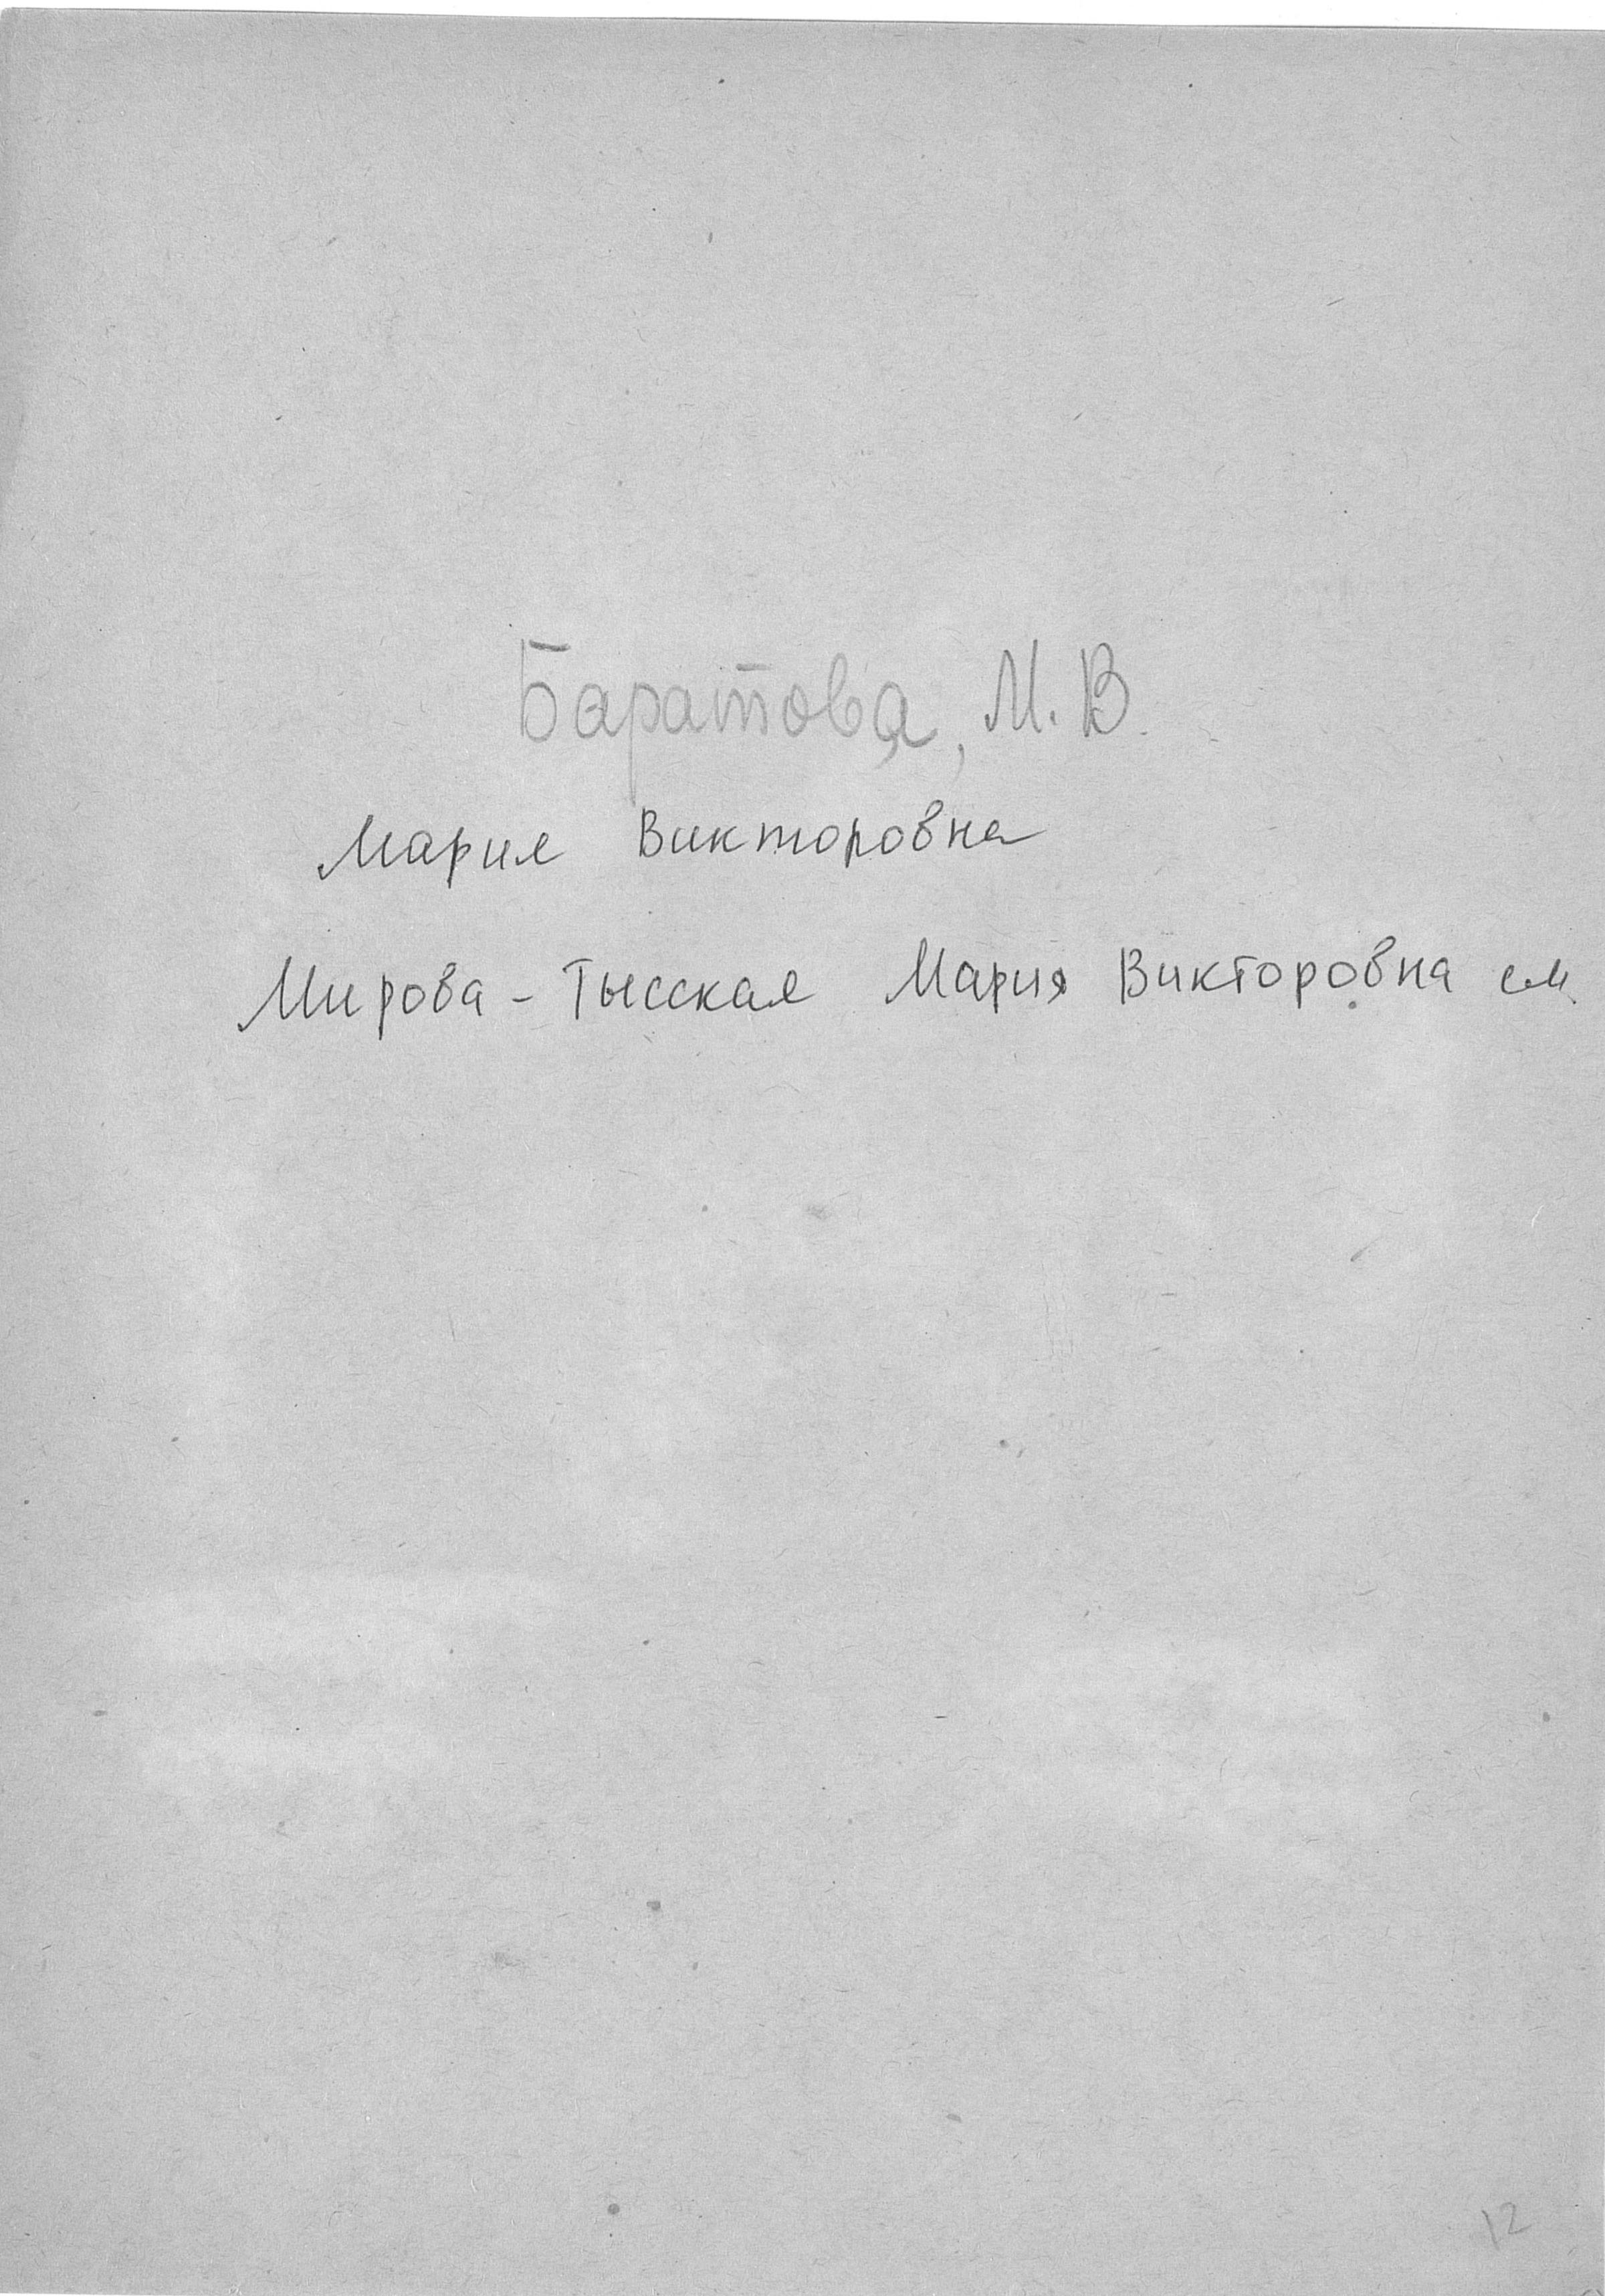 Баратова, М. В.
Мария Викторовна
Мирова - Тысская Мария Викторовна см.
12